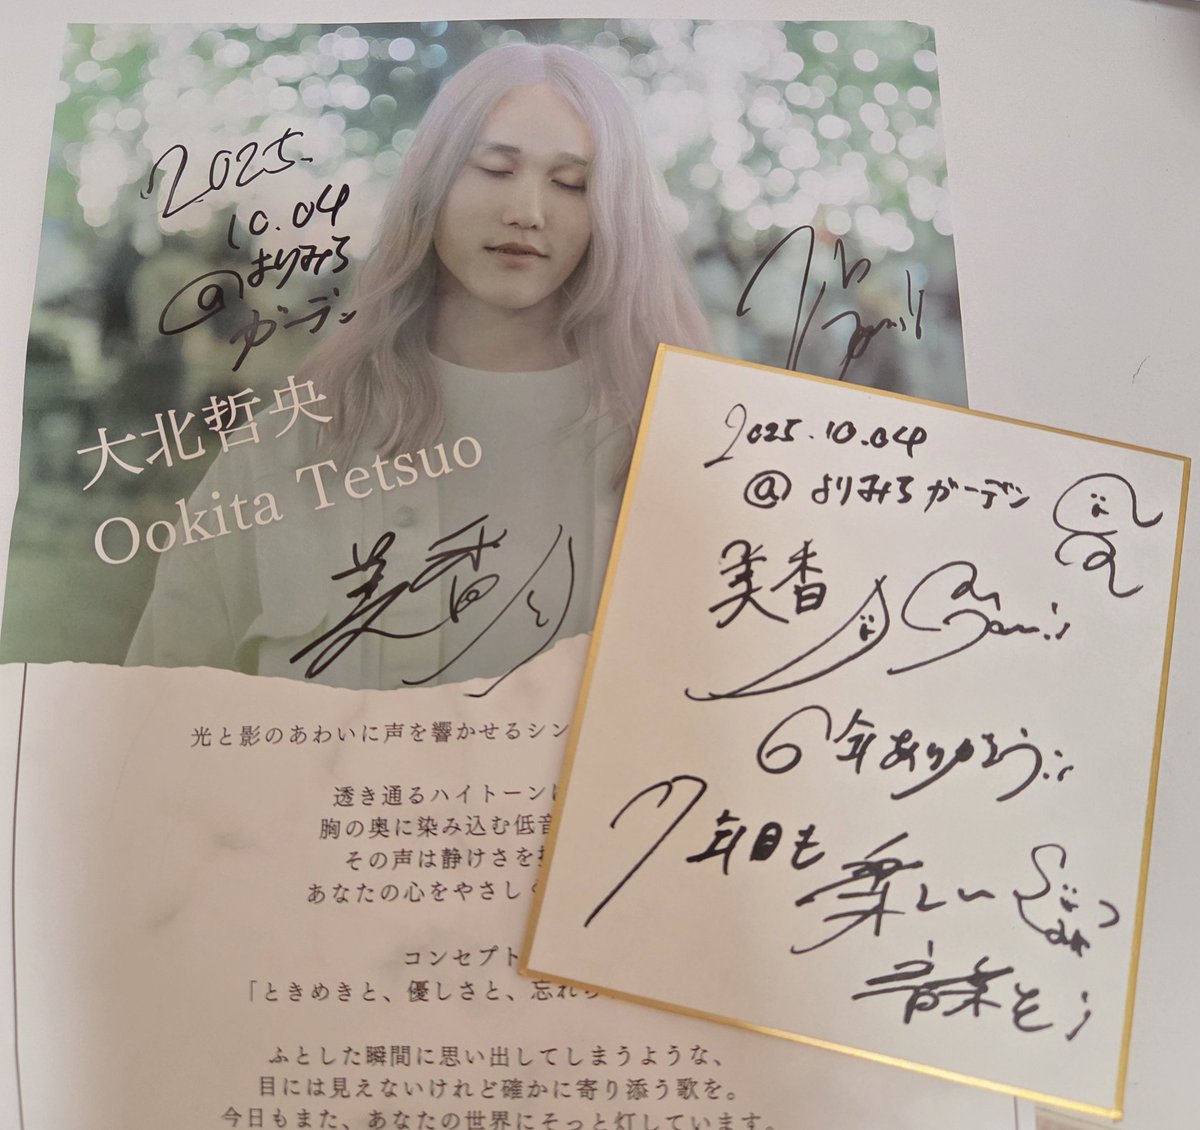 2025.
10.04
@よりみち
ガーデン
大北哲央
Ookita Tetsuo
美香
光と影のあわいに声を響かせるシン
透き通るハイトーン
胸の奥に染み込む低音
その声は静けさを
あなたの心をやさしく
コンセプト
「ときめきと、優しさと、忘れら
ふとした瞬間に思い出してしまうような、
目には見えないけれど確かに寄り添う歌を。
今日もまた、あなたの世界にそっと灯しています。
2025.10.04
@よりみちガーデン
美香
6年ありがとう
7年目も
楽しい
音楽を